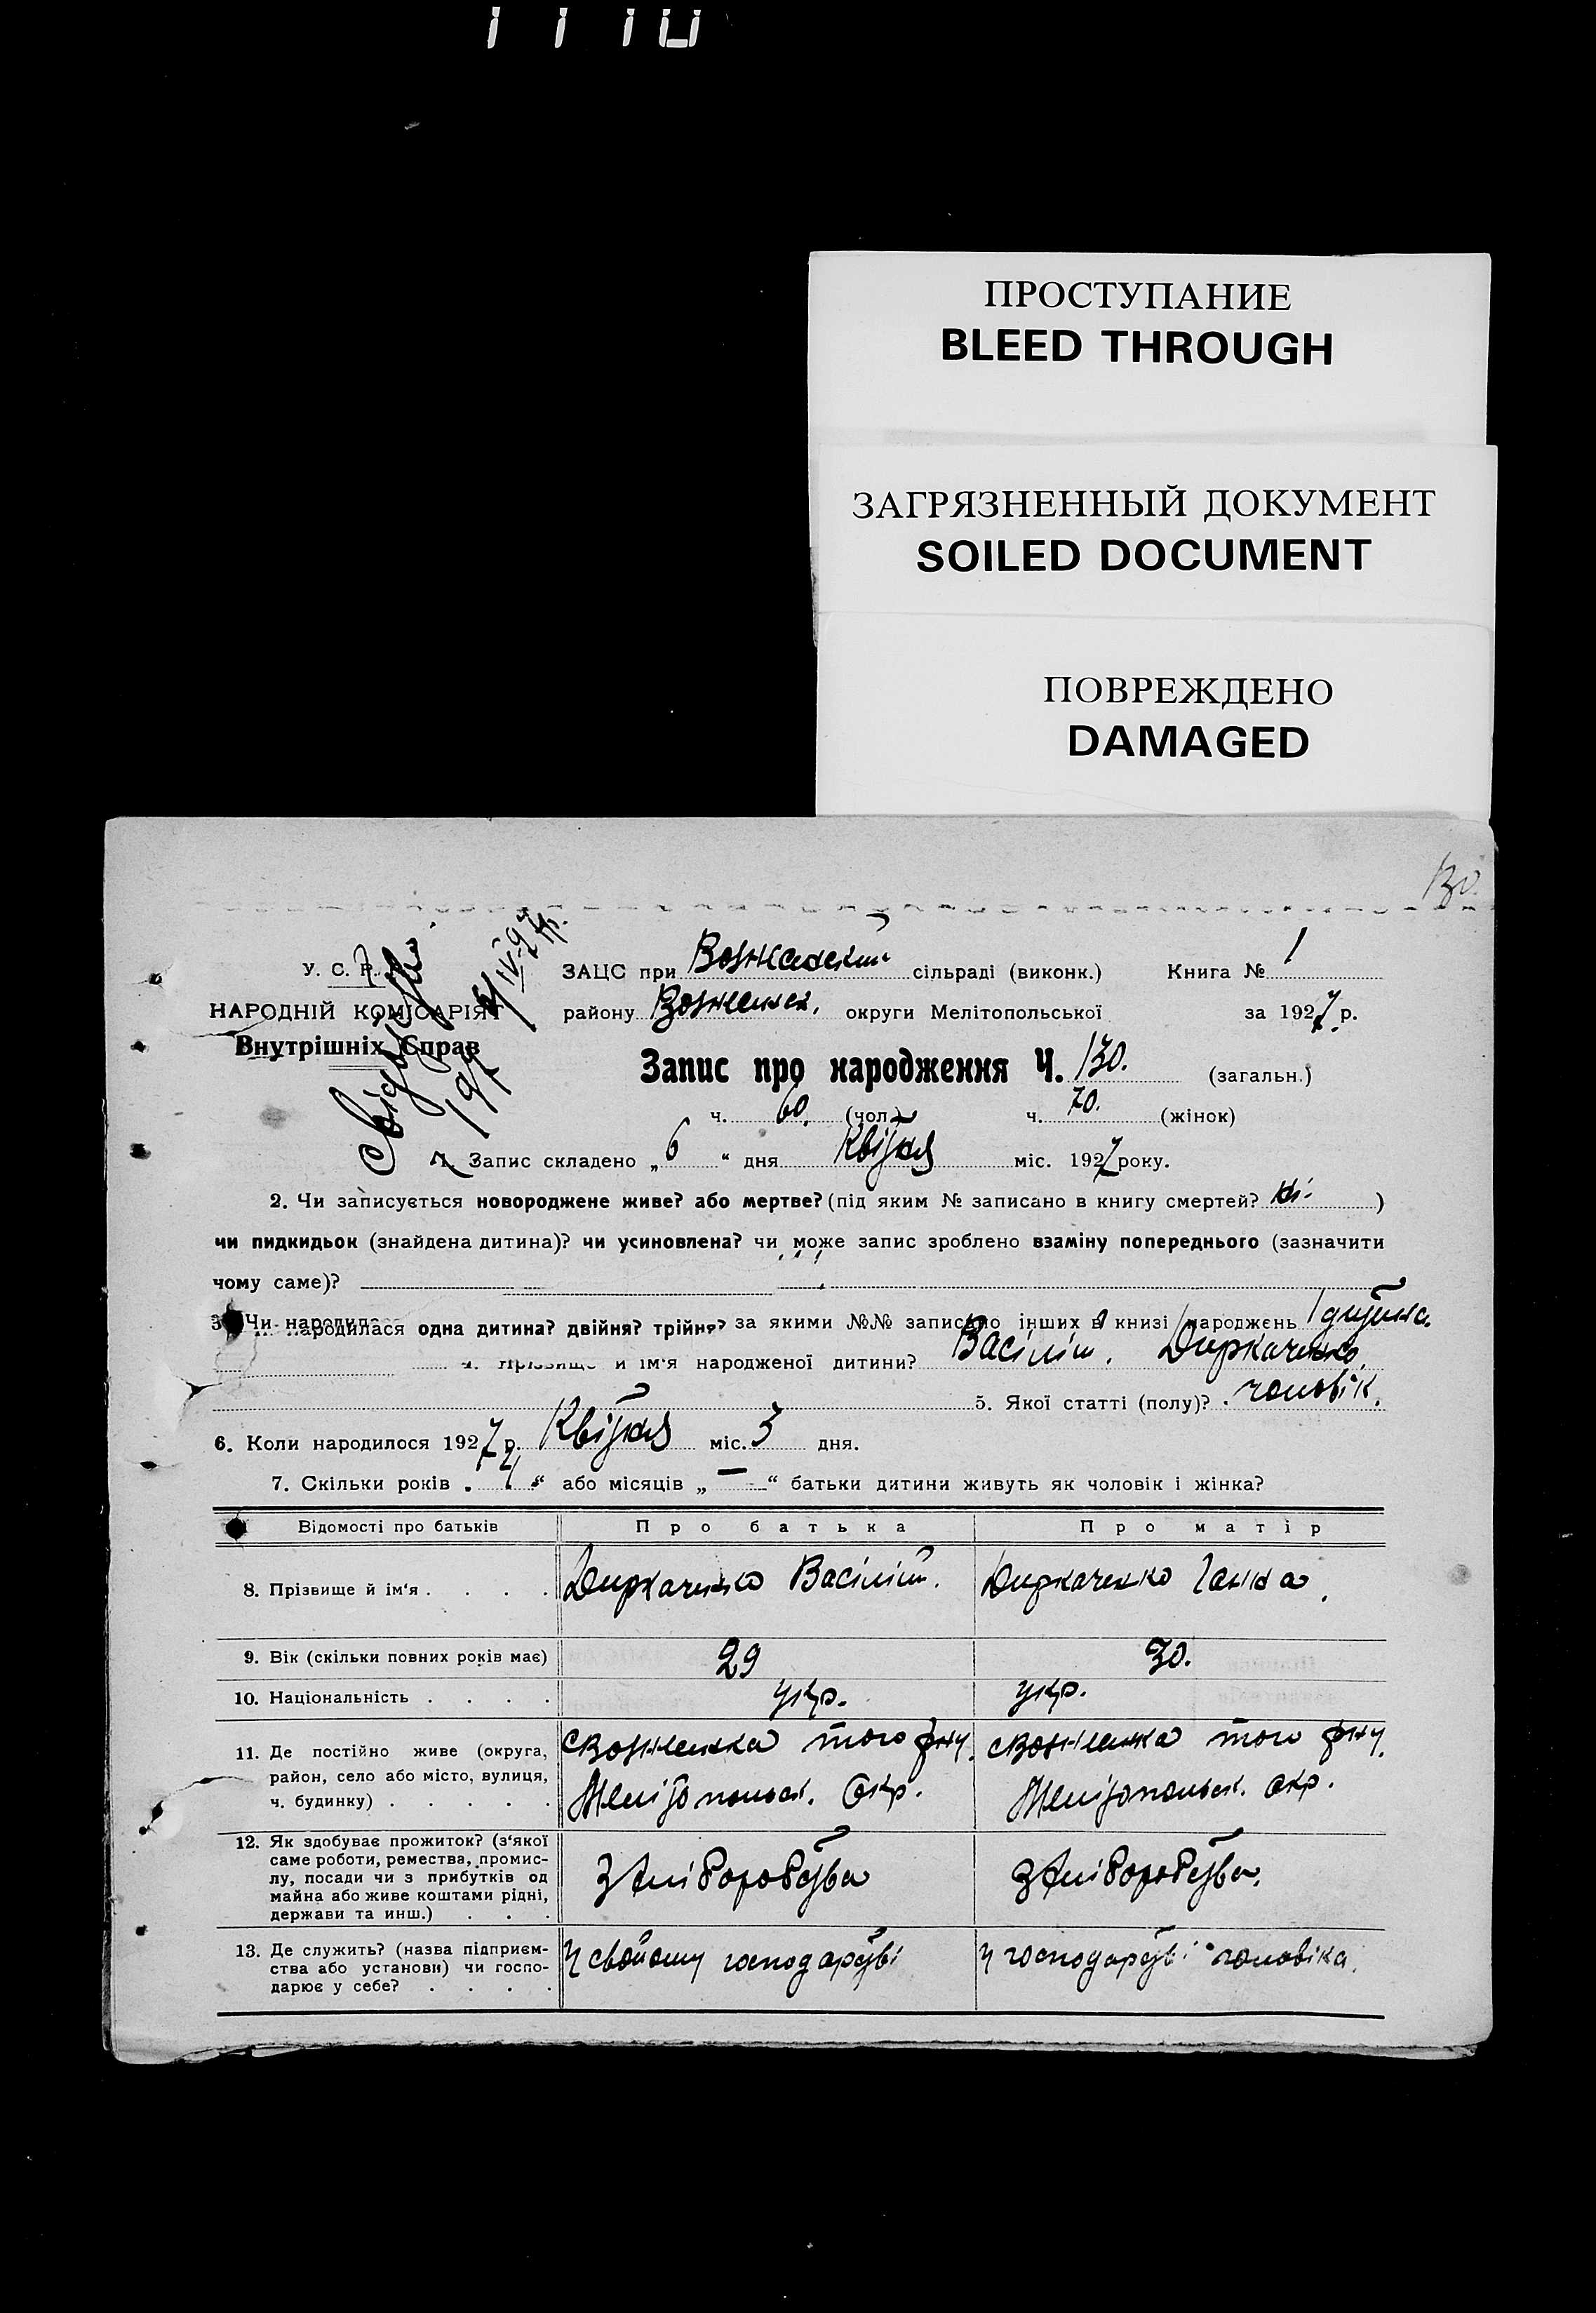 ПРОСТУПАНИЕ
BLEED THROUGH
ЗАГРЯЗНЕННЫЙ ДОКУМЕНТ
SOILED DOCUMENT
ПОВРЕЖДЕНО
DAMAGED
130.
У. С. Р. Р.
НАРОДНІЙ КОМІСАРІЯТ
Внутрішніх Справ
197
ЗАЦС при сільраді (виконк.) Книга № 1
району Вознесен. округи Мелітопольської за 1927 р.
Запис про народження Ч. 130. (загальн.)
ч. 60. (чол.) ч. 70. (жінок)
1. Запис складено „6“ дня Квітня міс. 1927 року.
2. Чи записується новороджене живе? або мертве? (під яким № записано в книгу смертей? ні)
чи пидкидьок (знайдена дитина)? чи усиновлена? чи може запис зроблено взаміну попереднього (зазначити
чому саме)?
3. Чи народилася одна дитина? двійня? трійня? за якими №№ записано інших в книзі народжень 1 дитина.
4. Прізвище й ім'я народженої дитини? Васілій. Диркаченко.
5. Якої статті (полу)? чоловік.
6. Коли народилося 1927 р. Квітня міс. 3 дня.
7. Скільки років „4“ або місяців „—“ батьки дитини живуть як чоловік і жінка?
Відомості про батьків Про батька Про матір
8. Прізвище й ім'я . . . . Диркаченко Васілій. Диркаченко Ганна.
9. Вік (скільки повних років має) 29 30.
10. Національність . . . . укр. укр.
11. Де постійно живе (округа, район, село або місто, вулиця, ч. будинку) . . . . . с Вознесенка того р-ну. Мелітопольск. Окр. с Вознесенка того р-ну. Мелітопольск. окр.
12. Як здобуває прожиток? (з'якої саме роботи, ремества, промислу, посади чи з прибутків од майна або живе коштами рідні, держави та инш.) . . . З хліборобства З хліборобства.
13. Де служить? (назва підприємства або установи) чи господарює у себе? . . . . У свойому господарстві У господарстві чоловіка.